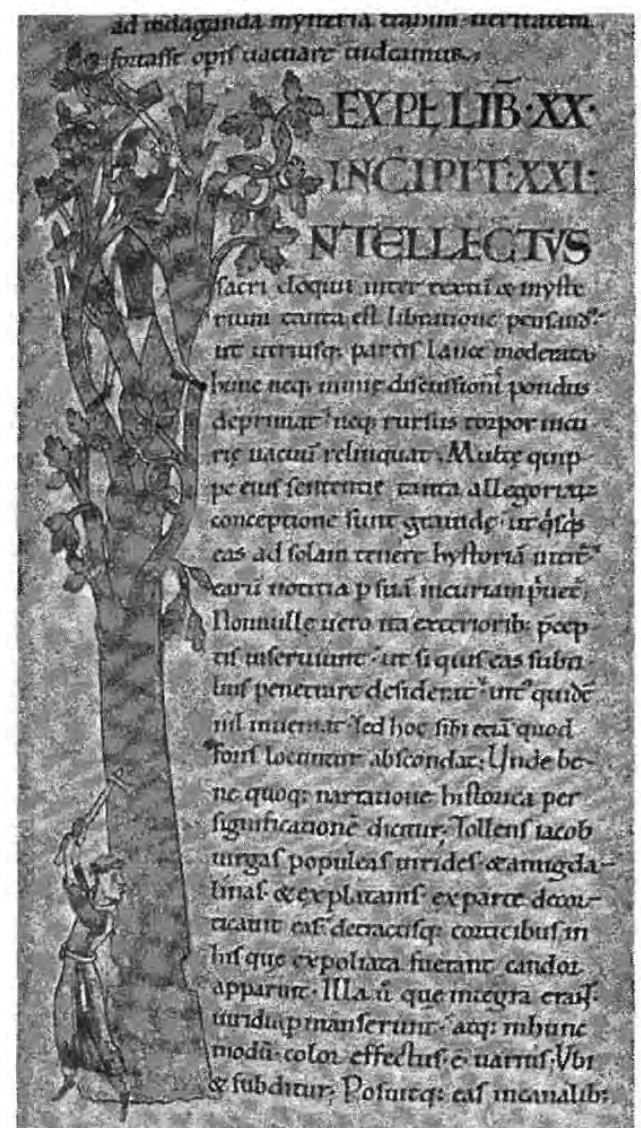 ad indaganda mysteria trahim ueritatem
fortasse opis uacuare uideamus.
EXPŁ LIB̄·XX·
INCIPIT·XXI:
NTELLECTVS
sacri eloquii inter textū & myste
rium tanta est libratione pensand᷒
ut utriusq; partis lance moderata
hunc neq; nimię discussionis pondus
deprimat neq; rursus torpor incu
rię uacuū relinquat. Multę quip
pe eius sententię tanta allegoriarū
conceptione sunt grauidę ut q̇sq̇s
eas ad solam tenere hystoriā nitit᷒
earū notitia p suā incuriam ṗuet᷒.
Nonnullę uero ita exteriorib; p̄cep
tis inseruiunt ut si quis eas subti
lius penetrare desiderat int᷒ quidē
nil inueniat sed hoc sibi etiā quod
foris locuntur abscondat; Unde be
ne quoq; narratione historica per
significationē dicitur; Tollens iacob
uirgas populeas uirides & amigda
linas & ex platanis ex parte decor
ticauit eas detractisq; corticibus in
his que expoliata fuerant candor
apparuit. Illa ů que integra erant
uiridia p manserunt atq; in hunc
modū color effectus ē uarius; Vbi
& subditur; Posuitq; eas in canalib;